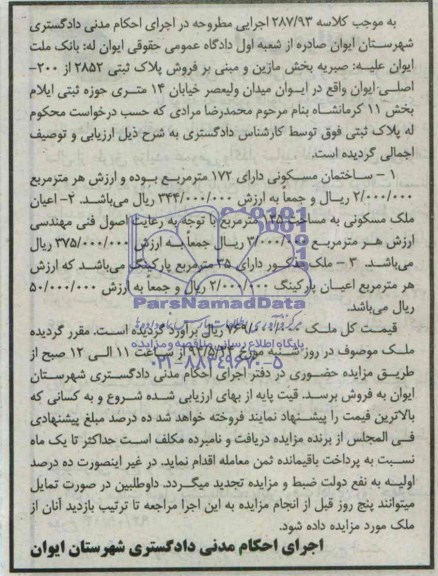 به موجب کلاسه ۲۸۷/۹۳ اجرایی مطروحه در اجرای احکام مدنی دادگستری
شهرستان ایوان صادره از شعبه اول دادگاه عمومی حقوقی ایوان له: بانک ملت
ایوان علیه: صبریه بخش مازین و مبنی بر فروش پلاک ثبتی ۲۸۵۲ از ۲۰۰-
اصلی ایوان واقع در ایوان میدان ولیعصر خیابان ۱۴ متری حوزه ثبتی ایلام
بخش ۱۱ کرمانشاه بنام مرحوم محمدرضا مرادی که حسب درخواست محکوم
له پلاک ثبتی فوق توسط کارشناس دادگستری به شرح ذیل ارزیابی و توصیف
اجمالی گردیده است.
۱ – ساختمان مسکونی دارای ۱۷۲ مترمربع بوده و ارزش هر مترمربع
۲/۰۰۰/۰۰۰ ریال و جمعاً به ارزش ۳۴۴/۰۰۰/۰۰۰ ریال می‌باشد. ۲- اعیان
ملک مسکونی به مساحت ۱۲۵ مترمربع با توجه به رعایت اصول فنی مهندسی
ارزش هر مترمربع ۳/۰۰۰/۰۰۰ ریال جمعاً به ارزش ۳۷۵/۰۰۰/۰۰۰ ریال
می‌باشد. ۳ – ملک مذکور دارای ۲۵ مترمربع پارکینگ می‌باشد که ارزش
هر مترمربع اعیان پارکینگ ۲/۰۰۰/۰۰۰ ریال و جمعاً به ارزش ۵۰/۰۰۰/۰۰۰
ریال می‌باشد.
ParsNamadData
قیمت کل ملک ریال برآورد گردیده است. مقرر گردیده
پایگاه اطلاع رسانی مناقصه و مزایده
ملک موصوف در روز شنبه مورخ از ساعت ۱۱ الی ۱۲ صبح از
۰۲۱-۸۸۳۴۹۶۷۰-۵
طریق مزایده حضوری در دفتر اجرای احکام مدنی دادگستری شهرستان
ایوان به فروش برسد. قیت پایه از بهای ارزیابی شده شروع و به کسانی که
بالاترین قیمت را پیشنهاد نمایند فروخته خواهد شد ده درصد مبلغ پیشنهادی
فی المجلس از برنده مزایده دریافت و نامبرده مکلف است حداکثر تا یک ماه
نسبت به پرداخت باقیمانده ثمن معامله اقدام نماید. در غیر اینصورت ده درصد
اولیه به نفع دولت ضبط و مزایده تجدید میگردد. داوطلبین در صورت تمایل
میتوانند پنج روز قبل از انجام مزایده به این اجرا مراجعه تا ترتیب بازدید آنان از
ملک مورد مزایده داده شود.
اجرای احکام مدنی دادگستری شهرستان ایوان